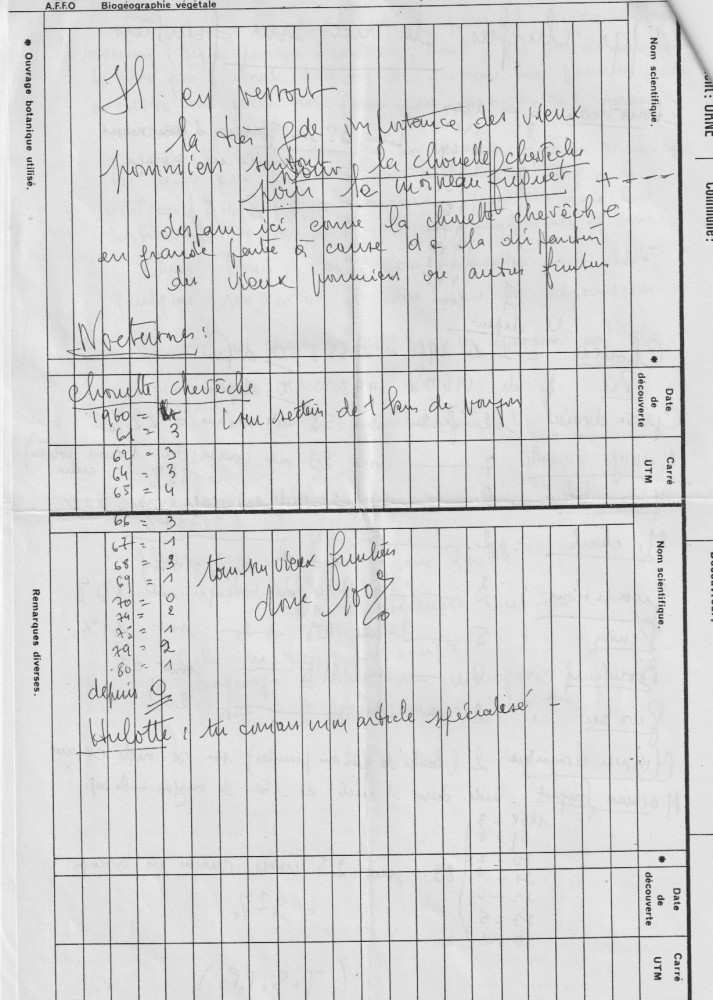 A.F.F.O Biogéographie végétale
Il en ressort
la très gde importance des vieux
pommiers surtout pour la chouette chevêche
pour le moineau friquet +----
disparu ici comme la chouette chevêche
en grande partie à cause de la disparition
des vieux pommiers ou autres fruitiers
Nocturnes :
Chouette chevêche
1960 = 4 (sur secteur de 1 km de rayon
61 = 3
62 = 3
64 = 3
65 = 4
66 = 3
67 = 1
68 = 3
69 = 1
70 = 0
74 = 2
75 = 1
79 = 2
80 = 1
tous sur vieux fruitiers
donc 100%
depuis 0
Hulotte : tu connais mon article spécialisé -
* Ouvrage botanique utilisé.
Remarques diverses.
Nom scientifique.
*
Date
de
découverte
Carré
UTM
Nom scientifique.
*
Date
de
découverte
Carré
UTM
ORNE
Commune: